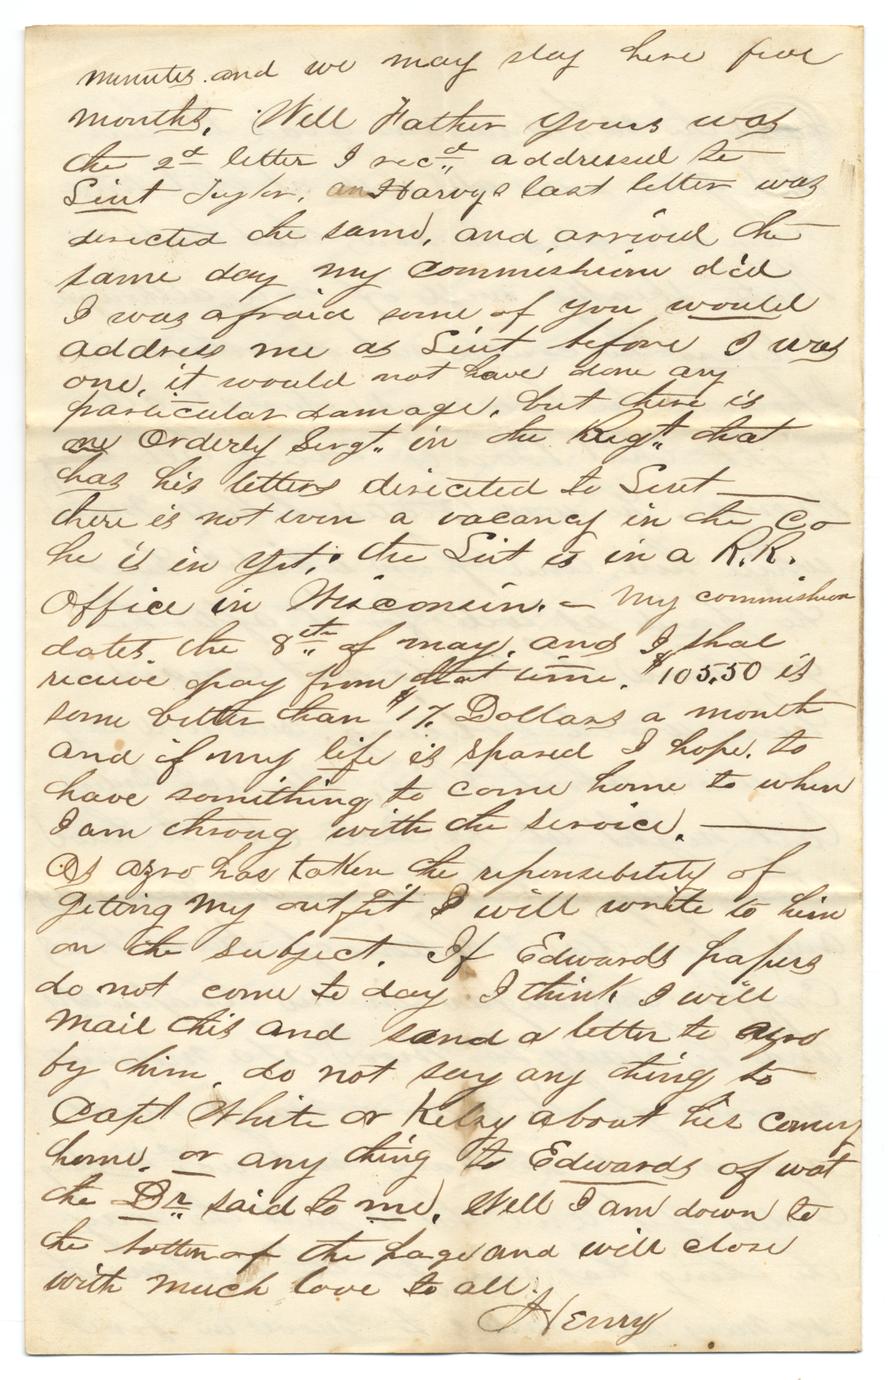 minutes. and we may stay here five
months. Well Father yours was
the 2d letter I recd. addressed to
Liut Taylor, an Harvys last letter was
directed the same, and arrived the
same day my commishion did
I was afraid some of you would
address me as Liut before I was
one, it would not have done any
particular damage, but there is
one Orderly Sergt. in the Regt. that
has his letters directed to Liut —
there is not even a vacancy in the Co
he is in yet; the Liut is in a R.R.
Office in Wisconsin. — My commishion
dates the 8th of may, and I shal
receive pay from that time. $105.50 is
some better than $17. Dollars a month
and if my life is spared I hope to
have something to come home to when
I am throug with the service. —
As azro has taken the reponsibility of
geting my outfit I will write to him
on the subject. If Edwards papers
do not come to day I think I will
mail this and sand a letter to azro
by him, do not say any thing to
Capt White or Kelsy about his coming
home, or any thing to Edwards of wat
the Dr. said to me. Well I am down to
the bottom of the page and will close
with much love to all.
Henry